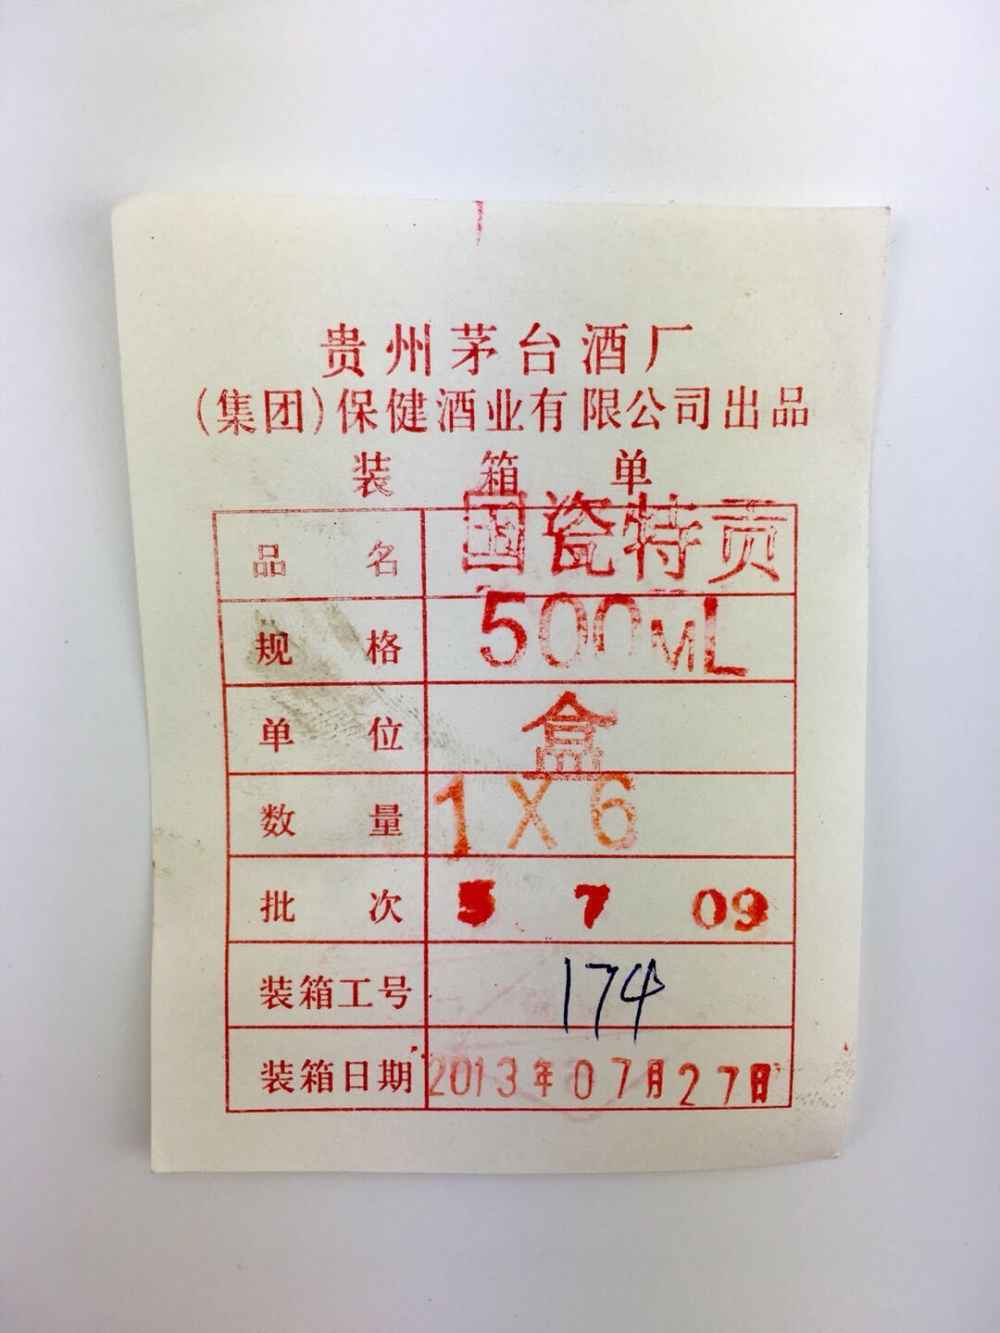 贵州茅台酒厂
(集团)保健酒业有限公司出品
装箱单
品名 国瓷特贡
规格 500ML
单位 盒
数量 1X6
批次 5 7 09
装箱工号 174
装箱日期 2013年07月27日